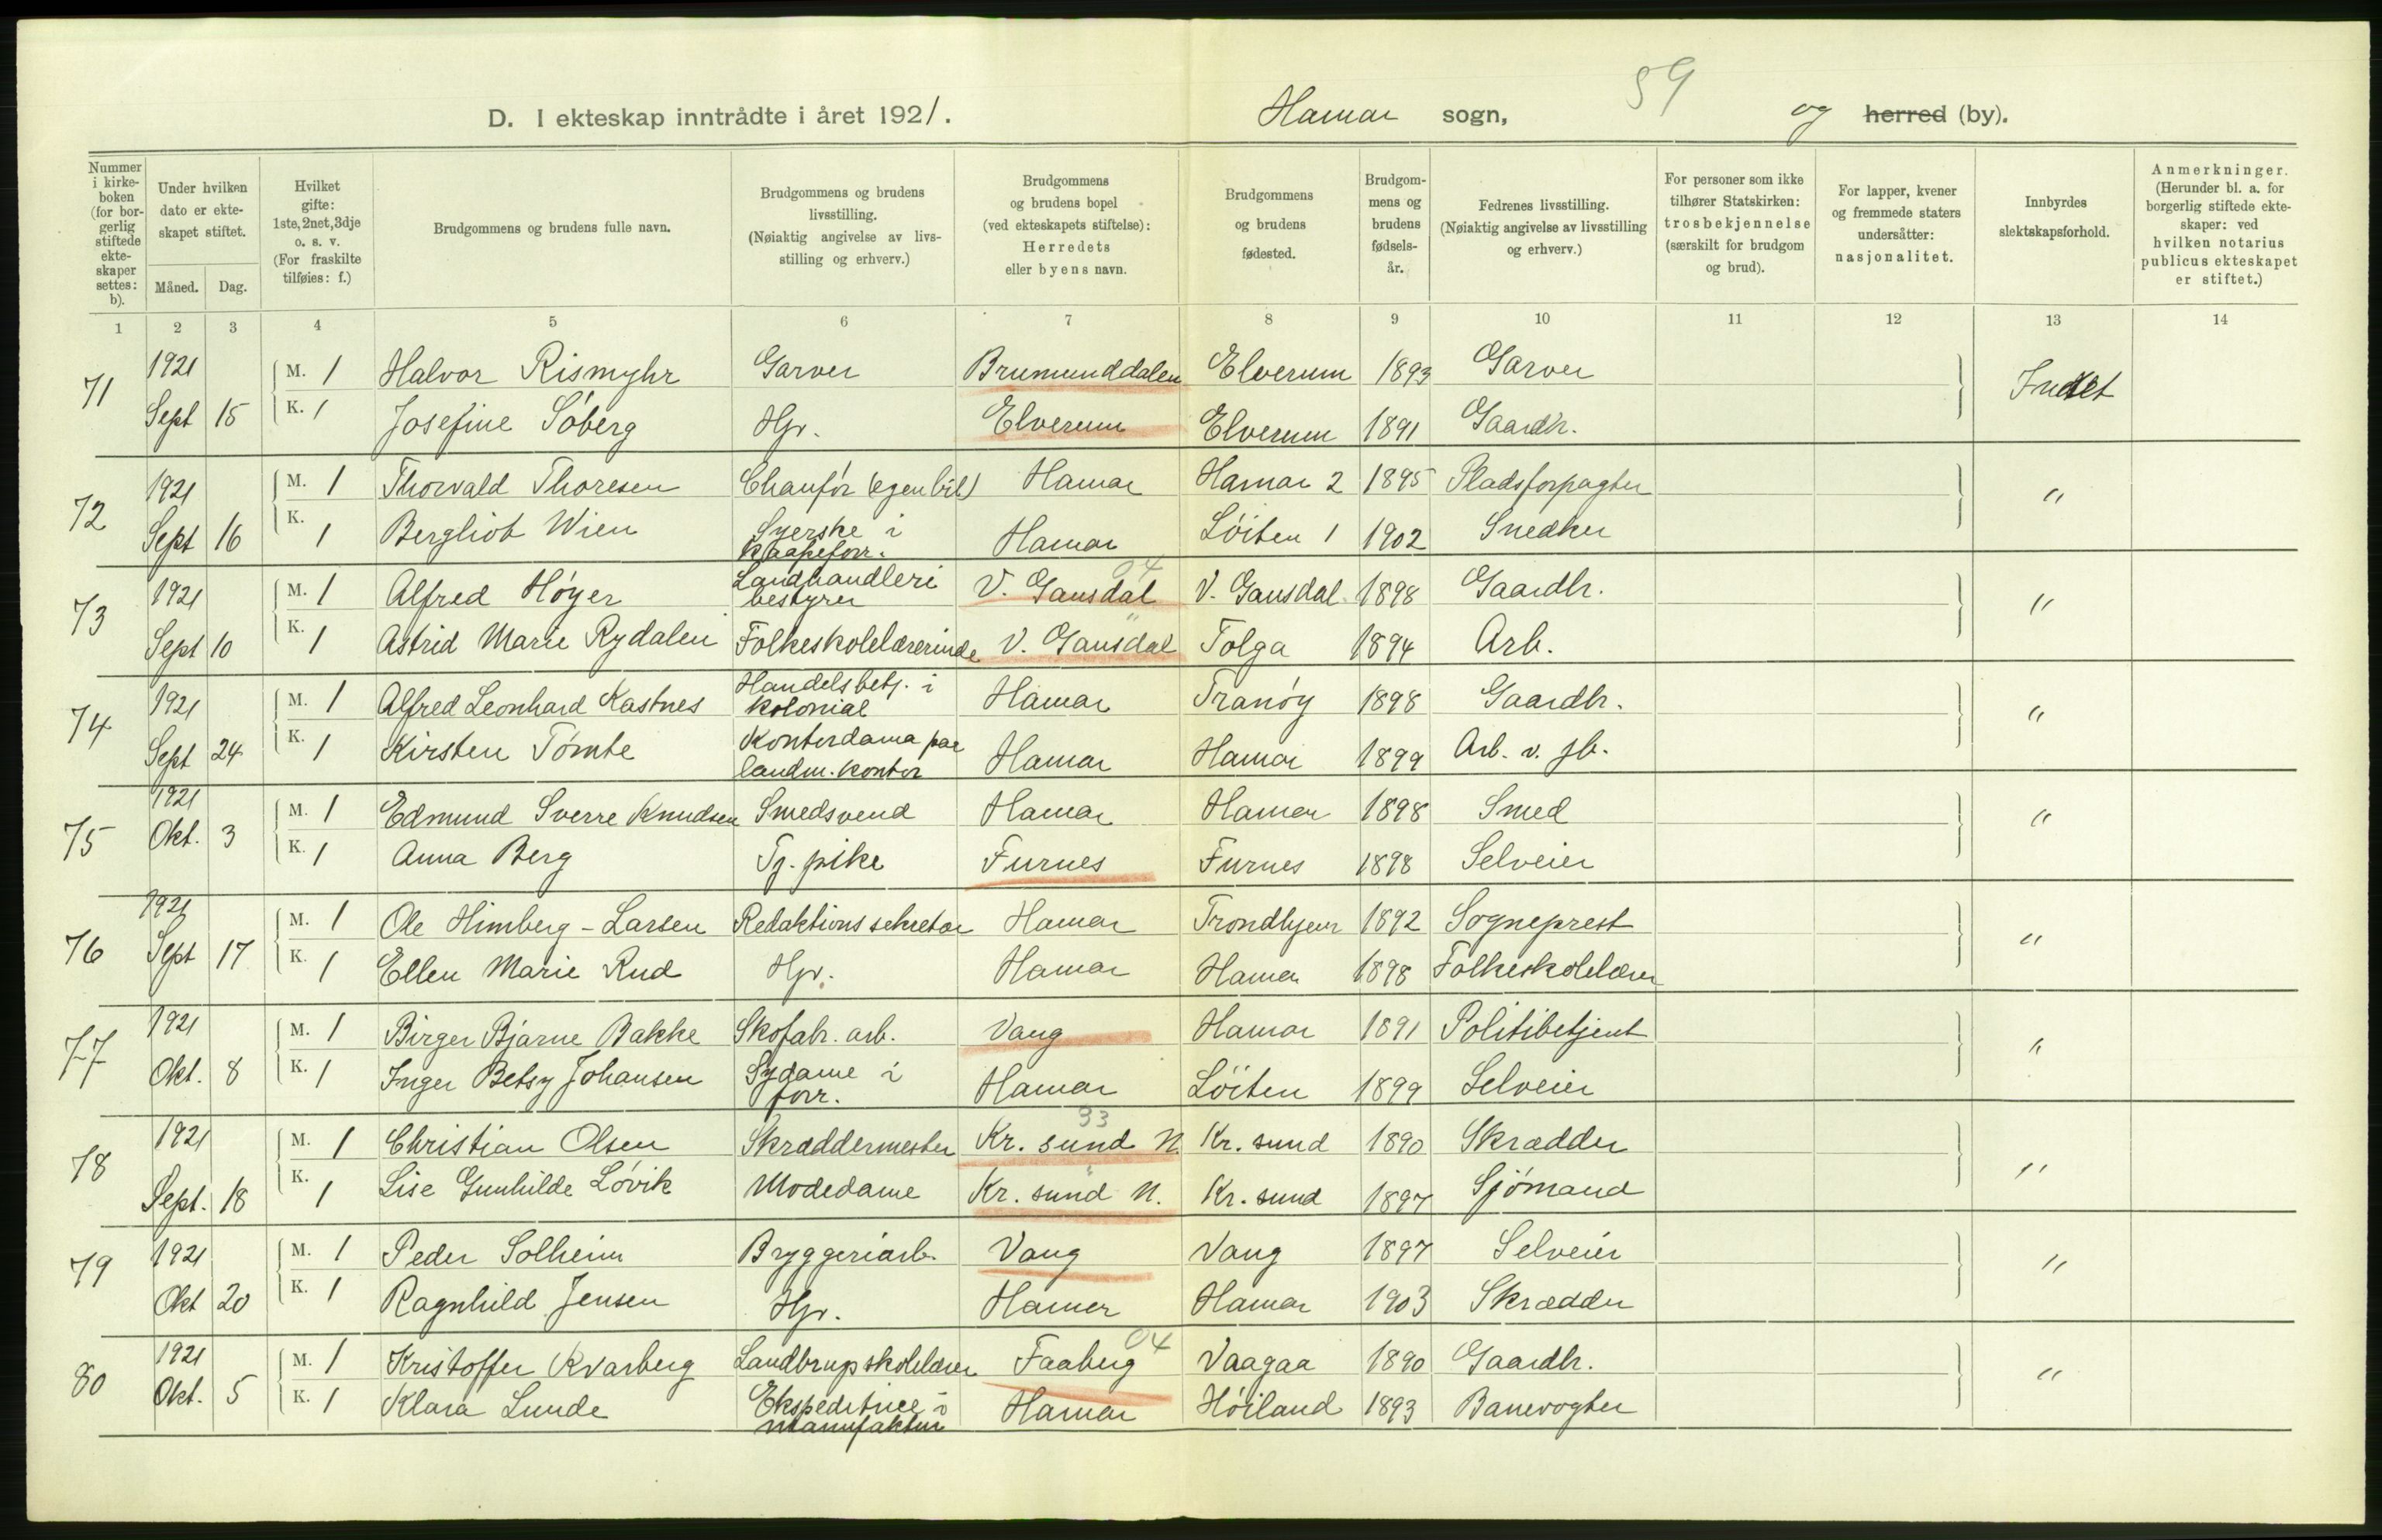 59
D. I ekteskap inntrådte i året 1921. Hamar sogn, og herred (by).
Nummer i kirkeboken (for borgerlig stiftede ekteskaper settes: b).
Under hvilken dato er ekteskapet stiftet.
Måned. Dag.
Hvilket gifte: 1ste, 2net, 3dje o. s. v. (For fraskilte tilføies: f.)
Brudgommens og brudens fulle navn.
Brudgommens og brudens livsstilling. (Nøiaktig angivelse av livsstilling og erhverv.)
Brudgommens og brudens bopel (ved ekteskapets stiftelse): Herredets eller byens navn.
Brudgommens og brudens fødested.
Brudgommens og brudens fødselsår.
Fedrenes livsstilling. (Nøiaktig angivelse av livsstilling og erhverv.)
For personer som ikke tilhører Statskirken: trosbekjennelse (særskilt for brudgom og brud).
For lapper, kvener og fremmede staters undersåtter: nasjonalitet.
Innbyrdes slektskapsforhold.
Anmerkninger. (Herunder bl. a. for borgerlig stiftede ekteskaper: ved hvilken notarius publicus ekteskapet er stiftet.)
1 2 3 4 5 6 7 8 9 10 11 12 13 14
71 1921 M. 1 Halvor Rismyhr Garver Brumunddalen Elverum 1893 Garver Intet
Sept 15 K. 1 Josefine Søberg Hpr. Elverum Elverum 1891 Gaardbr.
72 1921 M. 1 Thorvald Thoresen Chaufør (egen bil) Hamar Hamar 2 1895 Pladsforpagter "
Sept 16 K. 1 Bergliot Wien Syerske i kaapeforr. Hamar Løiten 1 1902 Snedker
73 1921 M. 1 Alfred Høyer Landhandleri bestyrer V. Gausdal 04 V. Gausdal 1898 Gaardbr. "
Sept 10 K. 1 Astrid Marie Rydalen Folkeskolelærerinde V. Gausdal " Tolga 1894 Arb.
74 1921 M. 1 Alfred Leonhard Kastnes Handelsbetj. i kolonial Hamar Tranøy 1898 Gaardbr. "
Sept 24 K. 1 Kirsten Tømte Kontordama paa landm. kontor Hamar Hamar 1899 Arb. v. jb.
75 1921 M. 1 Edmund Sverre Knudsen Smedsvend Hamar Hamar 1898 Smed "
Okt. 3 K. 1 Anna Berg Tj. pike Furnes Furnes 1898 Selveier
76 1921 M. 1 Ole Himberg-Larsen Redaktionssekretær Hamar Trondhjem 1892 Sogneprest "
Sept 17 K. 1 Ellen Marie Rud Hpr. Hamar Hamar 1898 Folkeskolelærer
77 1921 M. 1 Birger Bjarne Bakke Skofabr. arb. Vang Hamar 1891 Politibetjent "
Okt. 8 K. 1 Inger Betsy Johansen Sydame i forr. Hamar Løiten 1899 Selveier
78 1921 M. 1 Christian Olsen Skræddermester Kr. sund N. 33 Kr. sund 1890 Skrædder "
Sept. 18 K. 1 Lise Gunhilde Løvik Modedame Kr. sund N. " Kr. sund 1897 Sjømand
79 1921 M. 1 Peder Solheim Bryggeriarb. Vang Vang 1897 Selveier "
Okt 20 K. 1 Ragnhild Jensen Hpr. Hamar Hamar 1903 Skrædder
80 1921 M. 1 Kristoffer Kvarberg Landbrupskolelærer Faaberg 04 Vaagaa 1890 Gaardbr. "
Okt. 5 K. 1 Klara Lunde Ekspeditrice i manufaktur Hamar Høiland 1893 Banevogter